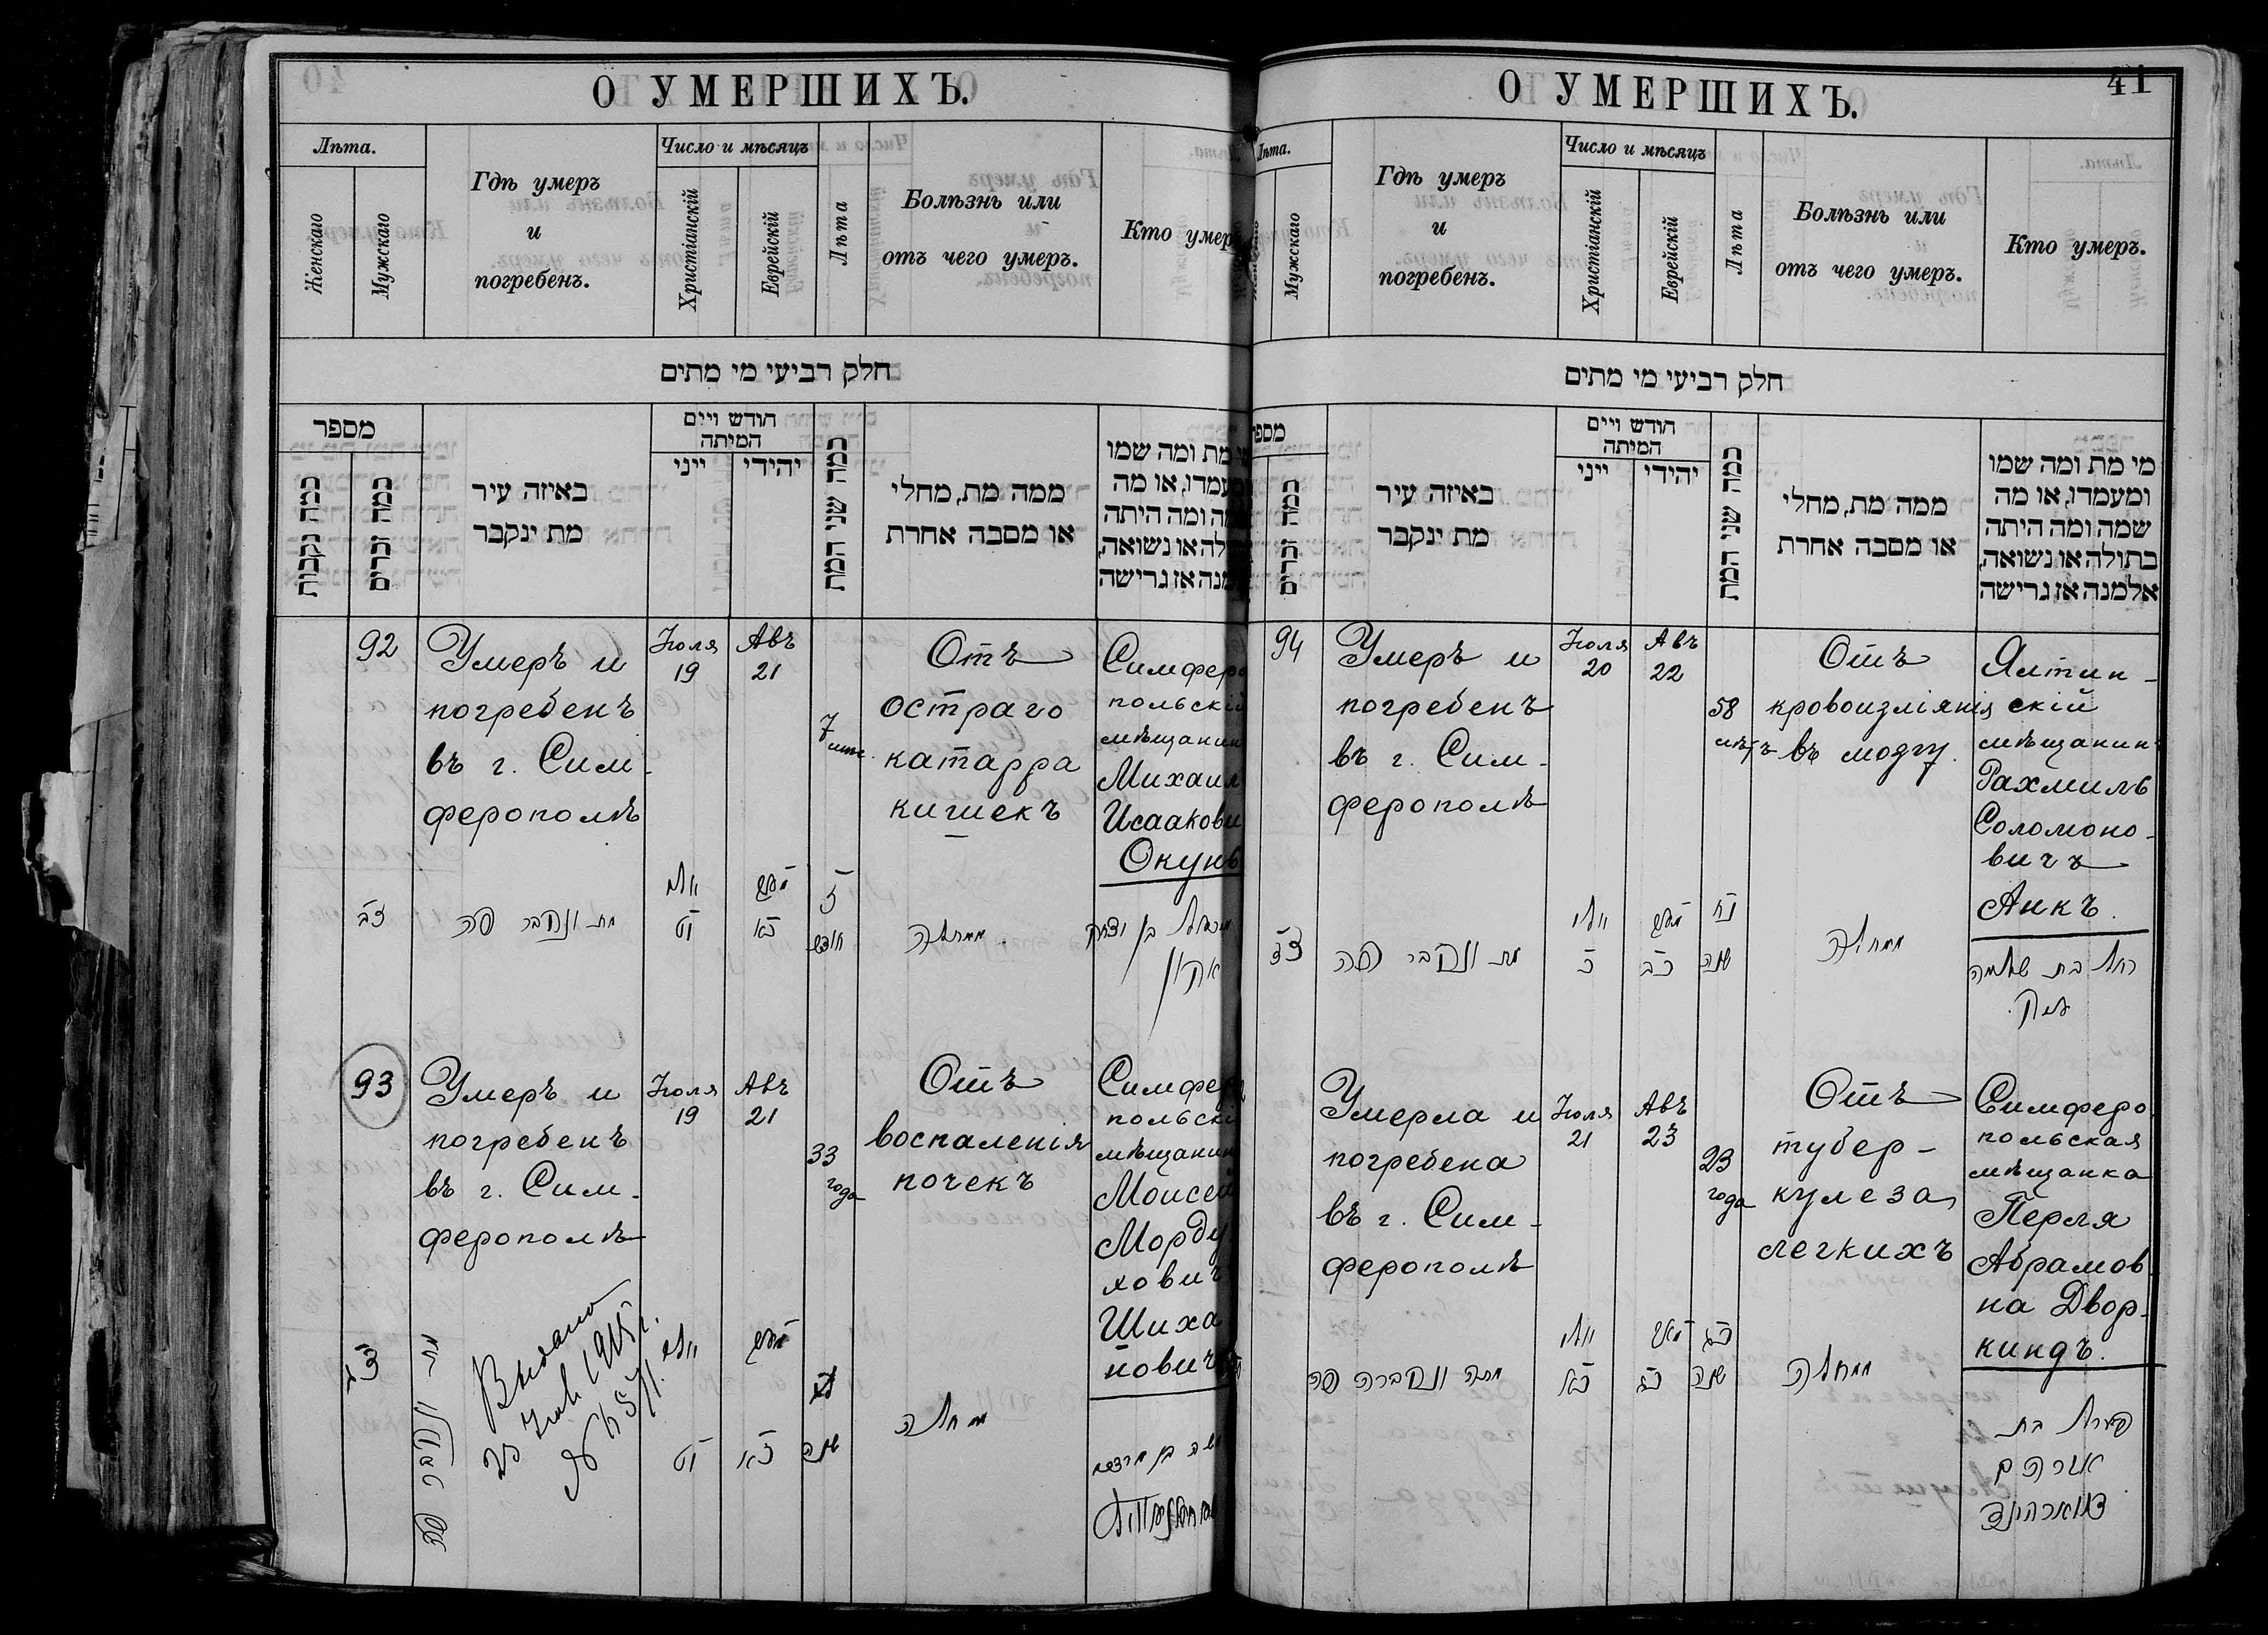 О УМЕРШИХЪ.
Лѣта.
Женскаго
Мужскаго
Гдѣ умеръ
и
погребенъ.
Число и мѣсяцъ
Христіанскій
Еврейскій
Лѣта
Болѣзнь или
отъ чего умеръ.
Кто умер
חלק רביעי מי מתים
מספר
כמה נקבות
כמה זכרים
באיזה עיר
מת ינקבר
חודש ויים
המיתה
ייני
יהידי
כמה שני המת
ממה מת, מחלי
או מסבה אחרת
מת ומה שמו
עמדו, או מה
ה ומה היתה
לה או נשואה,
מנה אז גרישה
92
Умеръ и
погребенъ
въ г. Сим-
ферополѣ
Іюля
19
Авъ
21
7
Отъ
остраго
катарра
кишекъ
Симферо
польскій
мѣщанин
Михаил
Исаакови
Окунь
צב
מת ונקבר פה
יולי
יט
כא
ז
חודש
ממחלה
בן יצחק
93
Умеръ и
погребенъ
въ г. Сим-
ферополѣ
Іюля
19
Авъ
21
33
года
Отъ
воспаленія
почекъ
Симферо
польскі
мѣщанин
Моисей
Морду
хович
Шиха
нович
צג
Выдано
1915 г.
יולי
יט
כא
שנה
מחלה
משה בן מרדכי
41
О УМЕРШИХЪ.
Лѣта.
Мужскаго
Гдѣ умеръ
и
погребенъ.
Число и мѣсяцъ
Христіанскій
Еврейскій
Лѣта
Болѣзнь или
отъ чего умеръ.
Кто умеръ.
חלק רביעי מי מתים
מספ
כמה זכרים
באיזה עיר
מת ינקבר
חודש ויים
המיתה
ייני
יהידי
כמה שני המת
ממה מת, מחלי
או מסבה אחרת
מי מת ומה שמו
ומעמדו, או מה
שמה ומה היתה
בתולה או נשואה,
אלמנה אז גרישה
94
Умеръ и
погребенъ
въ г. Сим-
ферополѣ
Іюля
20
Авъ
22
58
лѣтъ
Отъ
кровоизліянія
въ мозгу.
Ялтин-
скій
мѣщанинъ
Рахмиль
Соломоно-
вичъ
Аикъ.
צד
מת ונקבר פה
יולי
כ
כב
נח
שנה
ממחלה
בת שלמה
Умерла и
погребена
въ г. Сим-
ферополѣ
Іюля
21
Авъ
23
23
года
Отъ
тубер-
кулеза
легкихъ
Симферо
польская
мѣщанка
Перля
Абрамов-
на Двор-
киндъ.
מתה ונקברה פה
יולי
כא
כג
כג
שנה
ממחלה
פערל בת
אברהם
דווארקינד